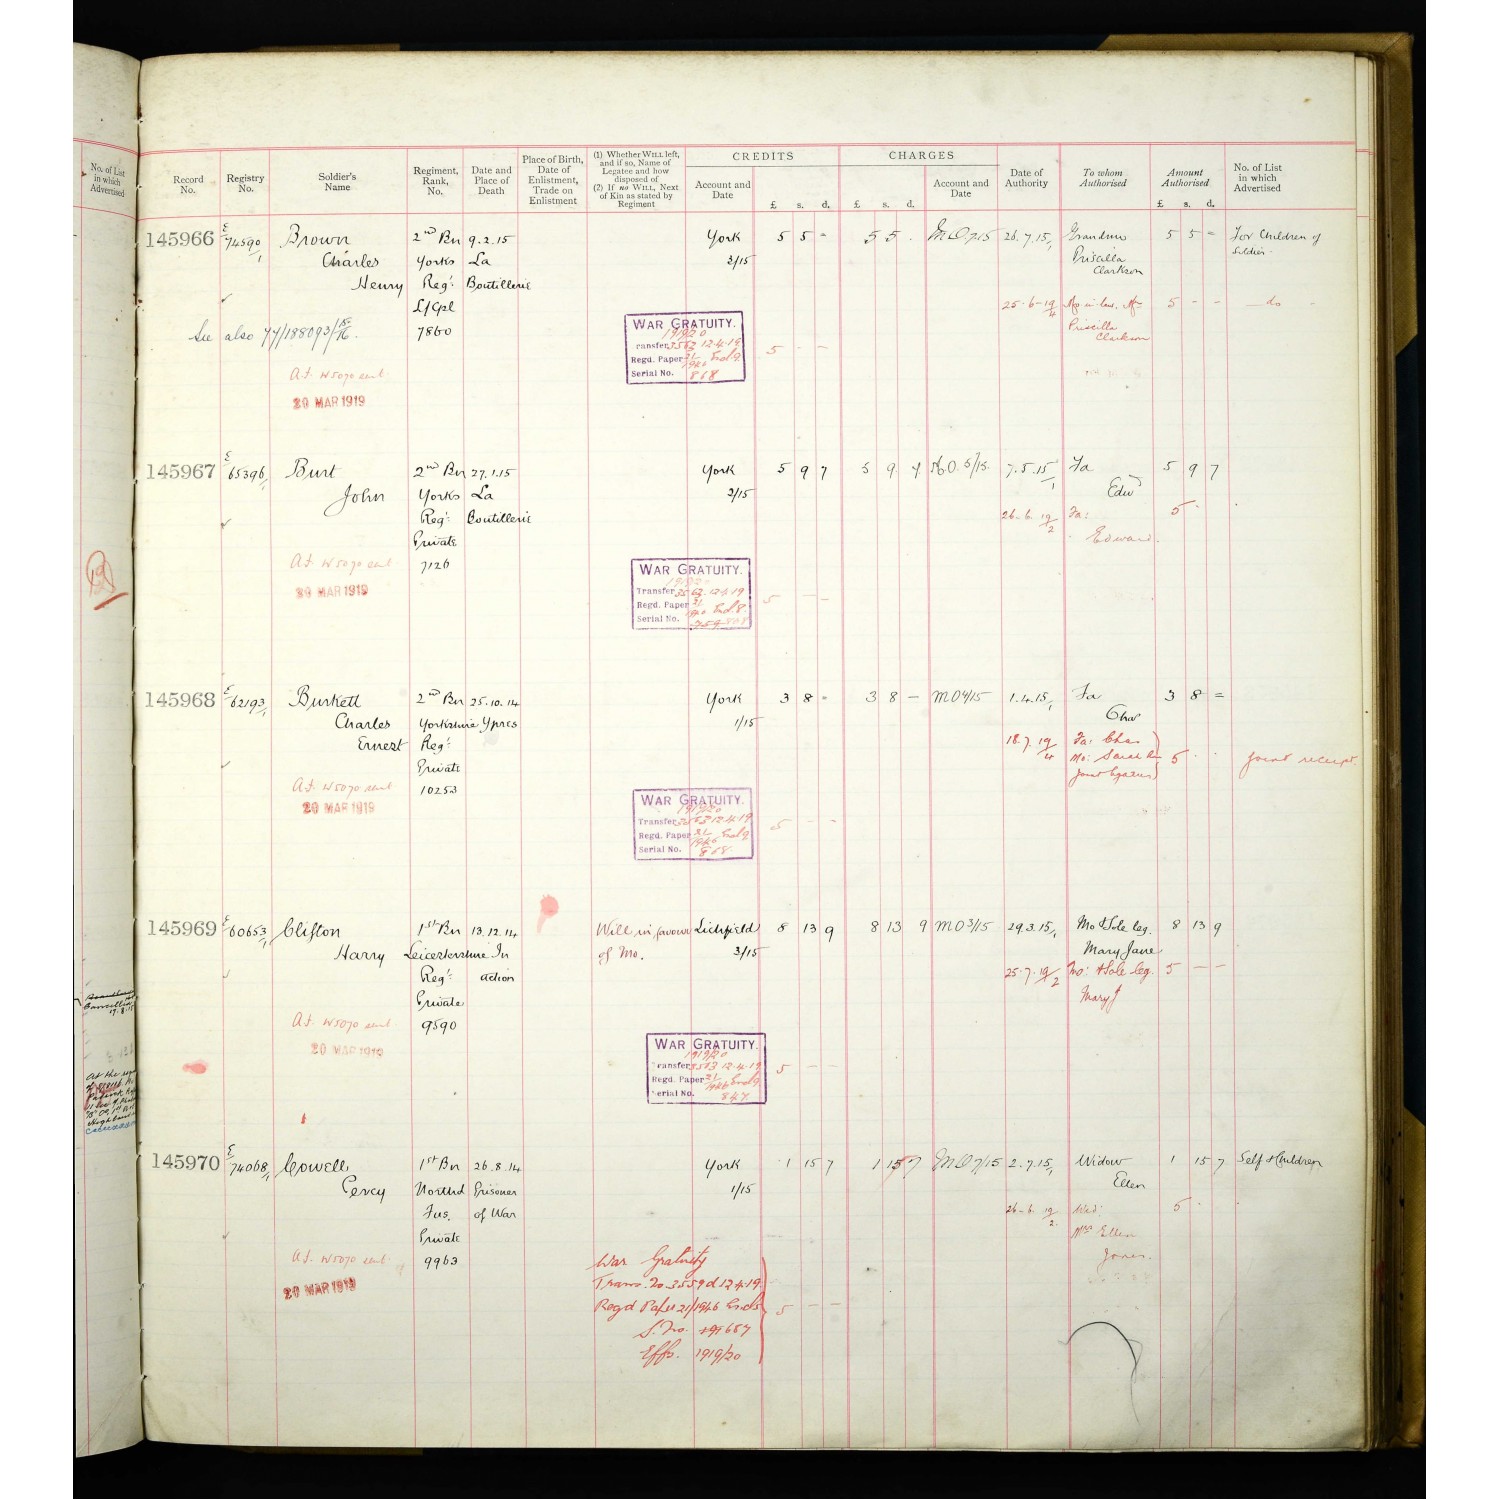 No. of List in which Advertised
Record No.
Registry No.
Soldier's Name
Regiment, Rank, No.
Date and Place of Death
Place of Birth, Date of Enlistment, Trade on Enlistment
(1) Whether WILL left, and if so, Name of Legatee and how disposed of
(2) If no WILL, Next of Kin as stated by Regiment
CREDITS
Account and Date
£ s. d.
CHARGES
£ s. d.
Account and Date
Date of Authority
To whom Authorised
Amount Authorised
£ s. d.
No. of List in which Advertised
145966 E/74590/1 Brown 2nd Bn 9.2.15 York 5 5 - 5 5 . MO 7/15 26.7.15/1 Grandmo 5 5 = For Children of
Charles Yorks La 3/15 Priscilla soldier
Henry Regt Boutillerie Clarkson
L/Cpl 25.6.19/4 Priscilla Clarkson 5 - - do
See also 7860
WAR GRATUITY.
1919/20
Transfer 3563 12.4.19
Regd. Paper 21/1946 Encl 9
Serial No. 868
5 - -
A.F. W5070 sent
20 MAR 1919
145967 E/65396/1 Burt 2nd Bn 27.1.15 York 5 9 7 5 9 7 M.O. 5/15 7.5.15/1 Fa 5 9 7
John Yorks La 3/15 Edwd
Regt Boutillerie 26.6.19/2 Fa: 5
Private Edward.
A.F. W5070 sent 7126
20 MAR 1919
WAR GRATUITY.
1919/20
Transfer 3563 12.4.19
Regd. Paper 21/1946 Encl 8
Serial No. 868
5 - -
145968 E/62193/1 Burkett 2nd Bn 25.10.14 York 3 8 - 3 8 - MO 4/15 1.4.15/1 Fa 3 8 =
Charles Yorkshire Ypres 1/15 Chas
Ernest Regt 18.7.19/4 Fa: Chas
Private Mo: Sarah 5
joint legatees
joint receipt.
A.F. W5070 sent 10253
20 MAR 1919
WAR GRATUITY.
1919/20
Transfer 3563 12.4.19
Regd. Paper 21/1946 Encl 9
Serial No. 868
5 - -
145969 E/60653/1 Clifton 1st Bn 13.12.14 Will in favour Lichfield 8 13 9 8 13 9 MO 3/15 29.3.15/1 Mo & Sole leg. 8 13 9
Harry Leicestershire In of Mo. 3/15 Mary Jane
Regt action 25.7.19/2 Mo: & Sole leg. 5 - -
Private Mary J
A.F. W5070 sent 9590
20 MAR 1919
WAR GRATUITY.
1919/20
Transfer 3563 12.4.19
Regd. Paper 21/1946 Encl 9
Serial No. 847
5 - -
145970 E/74068/1 Cowell 1st Bn 26.8.14 York 1 15 7 1 15 7 MO 7/15 2.7.15/1 Widow 1 15 7 Self & Children
Percy Northd Prisoner 1/15 Ellen
Fus. of War 26.6.19/2. Wid: 5
Private Mrs Ellen
A.F. W5070 sent 9963 Jones.
20 MAR 1919
War Gratuity
Trans. No. 3559 d 12.4.19
Regd Paper 21/1946 Encl 5
S. No. 687
Effs. 1919/20
5 - -
Cancelled
17.8.15